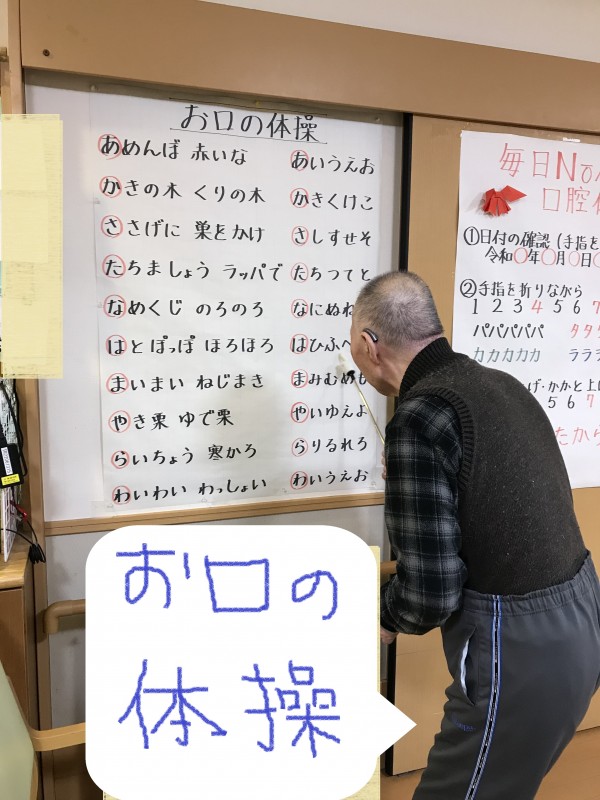 お口の体操
あめんぼ 赤いな
かきの木 くりの木
ささげに 巣をかけ
たちましょう ラッパで
なめくじ のろのろ
はとぽっぽ ほろほろ
まいまい ねじまき
やき栗 ゆで栗
らいちょう 寒かろ
わいわい わっしょい
あいうえお
かきくけこ
さしすせそ
たちつてと
なにぬね
はひふへ
まみむめも
やいゆえよ
らりるれろ
わいうえお
毎日No
口腔
①日付の確認(手指を
令和〇年〇月〇日
②手指を折りながら
1 2 3 4 5 6 7
パパパパパ タタ
カカカカカ ラララ
げ・かかと上
5 6 7
たから
お口の
体操